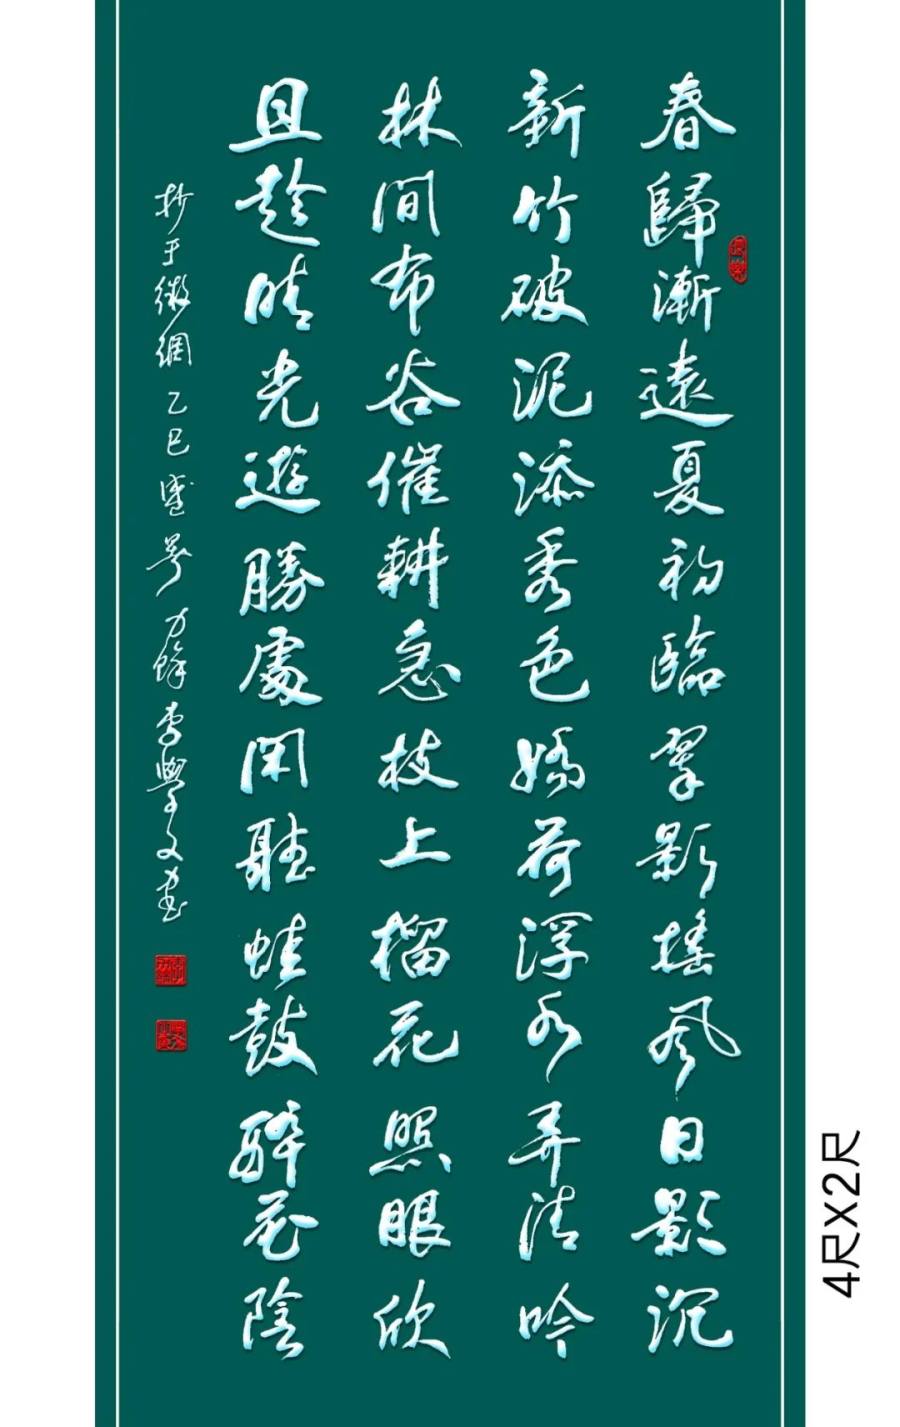 春歸漸遠夏初臨翠影搖風日影沉
新竹破泥添秀色嬌荷浮水弄清吟
林間布谷催耕急枝上榴花照眼欣
且趁晴光遊勝處閑聽蛙鼓醉花陰
抄于微網乙巳盛暑李學文書
4尺X2尺